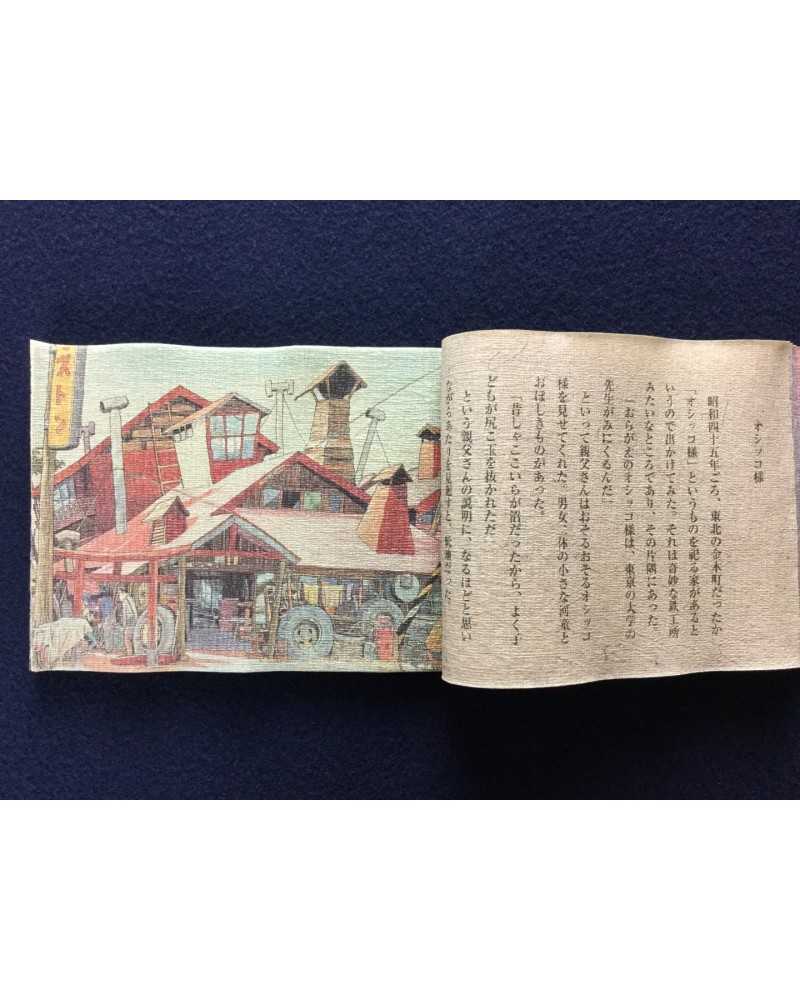 オシッコ様
昭和四十五年ごろ、東北の金木町だったか
「オシッコ様」というものを祀る家があると
いうので出かけてみた。それは奇妙な鉄工所
みたいなところであり、その片隅にあった。
「おらがえのオシッコ様は、東京の大学の
先生がみにくるんだ」
といって親父さんはおそるおそるオシッコ
様を見せてくれた。男女二体の小さな河童と
おぼしきものがあった。
「昔しゃここいらが沼だったから、よく子
どもが尻こ玉を抜かれただ」
という親父さんの説明に、なるほどと思い
ストン